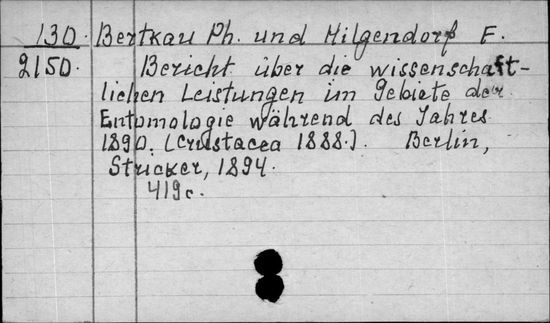 130. Bertkau Ph. und Hilgendorf F.
2150. Bericht über die wissenschaft-
lichen Leistungen im Gebiete der
Entomologie während des Jahres
1890. (Crustacea 1888.). Berlin,
Stricker, 1894.
419c.